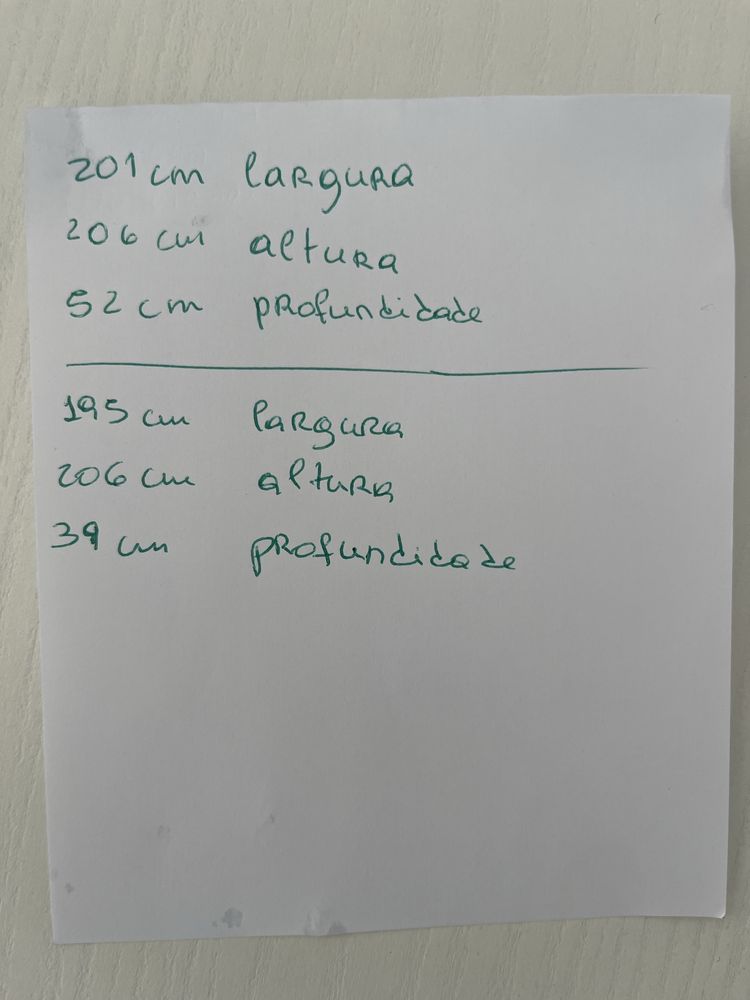 201 cm largura
206 cm altura
52 cm profundidade
195 cm largura
206 cm altura
39 cm profundidade